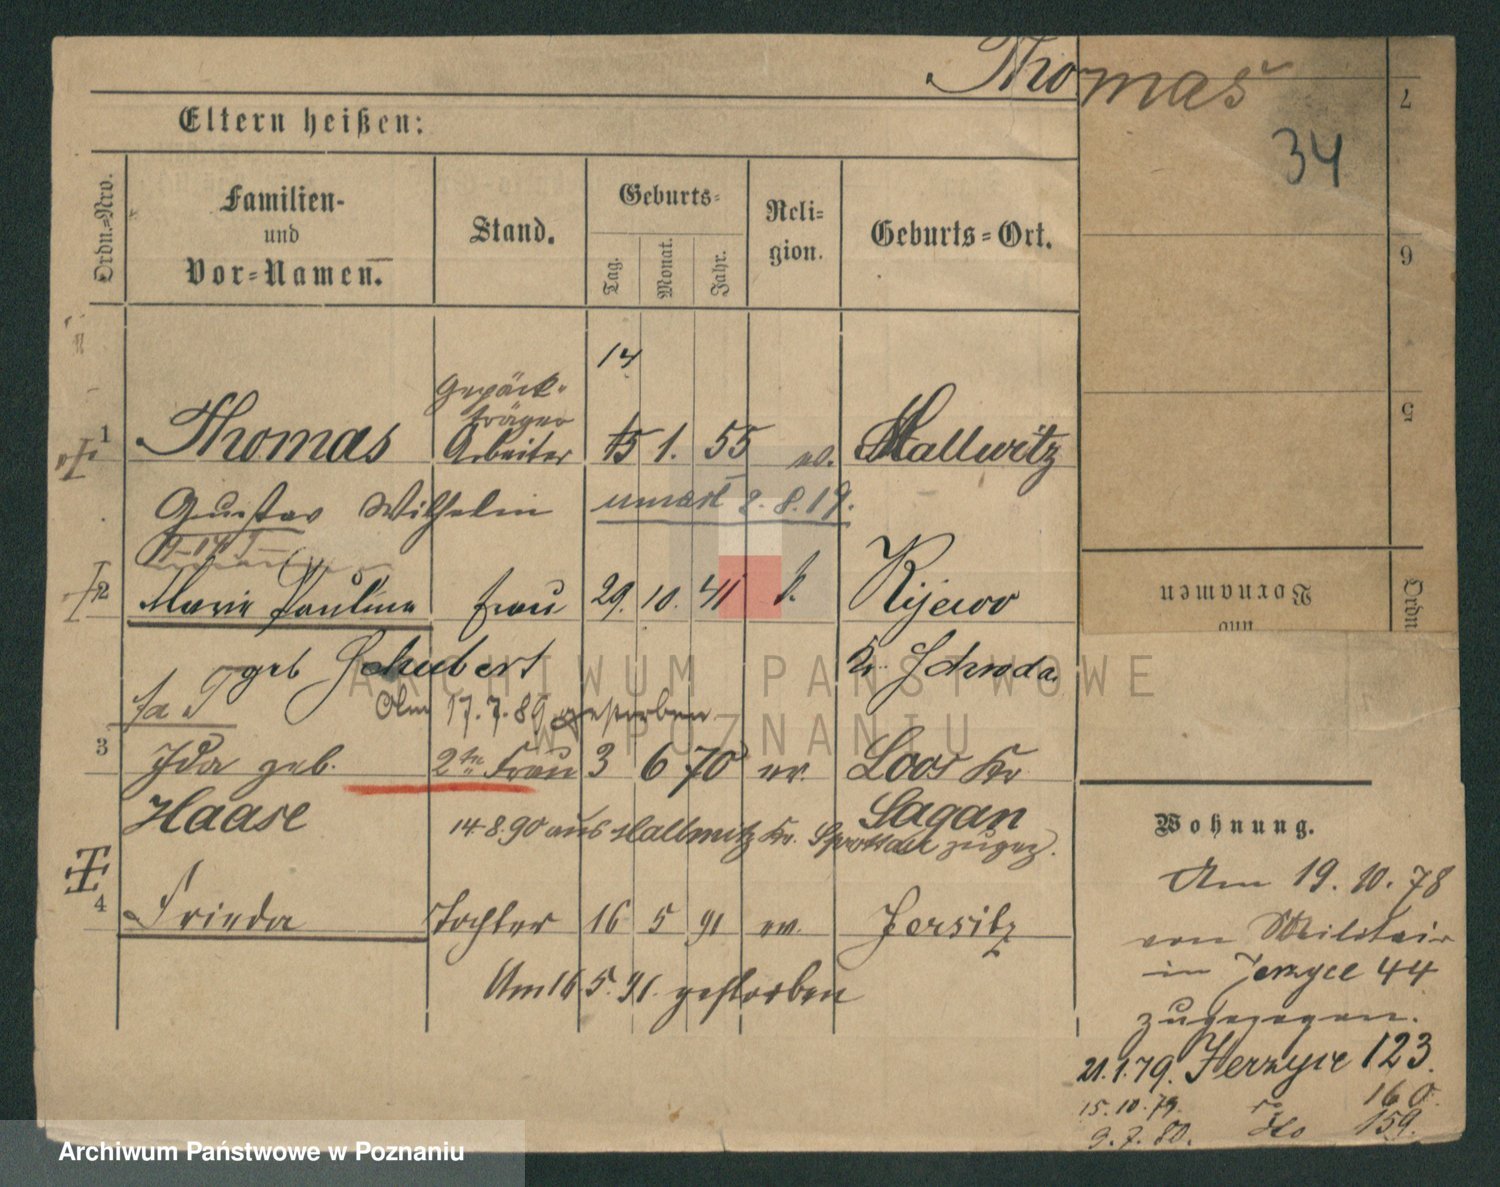 Thomas
34
7
6
5
Eltern heißen:
Ordn.-Nro.
Familien-
und
Vor-Namen.
Stand.
Geburts-
Tag.
Monat.
Jahr.
Reli-
gion.
Geburts-Ort.
14
Gepäck-
träger
1 Thomas Arbeiter 15 1. 55 ev. Hallwitz
Gustav Wilhelm 2.8.19.
2 Marie Pauline Frau 29. 10. 41 k. Kijewo
geb Schubert Kr. Schroda
Am 17.7.89 gestorben
3 Ida geb. 2te Frau 3 6 70 ev. Loos Kr
Haase Sagan
14.8.90 aus Hallwitz Kr. Sprottau zugez.
4 Frieda Tochter 16 5 91 ev. Jersitz
Am 16.5.91. gestorben
Vornamen
und
Ordn
Wohnung.
Am 19.10.78
von Militair
in Jerzyce 44
zugezogen.
21.1.79. Jerzyce 123.
15.10.79. 160.
9.7.80. do 159.
ARCHIWUM PAŃSTWOWE
W POZNANIU
Archiwum Państwowe w Poznaniu